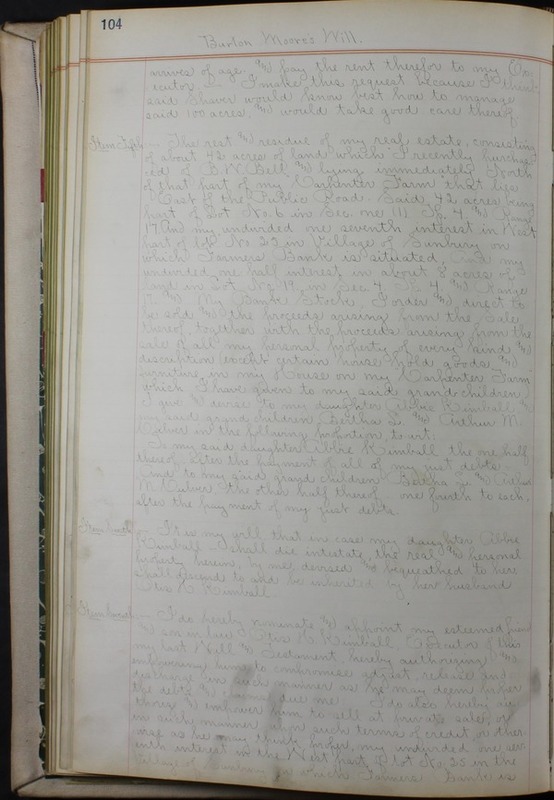 104
Burton Moore's Will.
arrives of age & pay the rent therefor to my Exe-
cutor. I make this request because I think
said Shaver would know best how to manage
said 100 acres & would take good care thereof
Item Fifth — The rest & residue of my real estate, consisting
of about 42 acres of land which I recently purchas-
ed of B.W. Bell & lying immediately North
of that part of my Carpenter Farm that lies
East of the Public Road. Said 42 acres being
part of Lot No. 6 in Sec. one (1) Tp. 4, & Range
17 & my undivided one seventh interest in West
part of lot No 25 in Village of Sunbury on
which Farmers Bank is situated, And my
undivided one half interest in about 8 acres of
land in Lot No. 19 in Sec 4 Tp. 4, & Range
My Bank Stock, I order & direct to
be sold & the proceeds arising from the Sales
thereof together with the proceeds arising from the
sale of all my personal property of every kind &
discription (except certain house hold goods &
furniture in my House on my Carpenter Farm
which I have given to my said grand children
I give & devise to my daughter Abbie Kimball &
my said grand children Bertha & Arthur M.
in the following proportion, to wit:
To my said daughter Abbie Kimball the one half
thereof after the payment of all of my just debts
And to my said grand children Bertha & Arthur
M. the other half thereof one fourth to each,
after the payment of my just debts.
Item — It is my will that in case my daughter Abbie
Kimball shall die intestate, the real & personal
property herein, by me, devised & bequeathed to here
shall descend to and be inherited by her husband
Otis H. Kimball
Item — I do hereby nominate & appoint my esteemed friend
& son in law Otis H. Kimball, Executor of this
my last Will & Testament, hereby authorizing &
empowering him to compromise adjust, release and
discharge in such manner as he may deem proper
the debts & due me I do also hereby au-
thorize & empower him to sell at private sale, or
in such manner upon such terms of credit, or other-
wise as he may think proper, my undivided one sev-
enth interest in the West part of lot No. 25 in the
Village of Sunbury on which Farmers Bank is